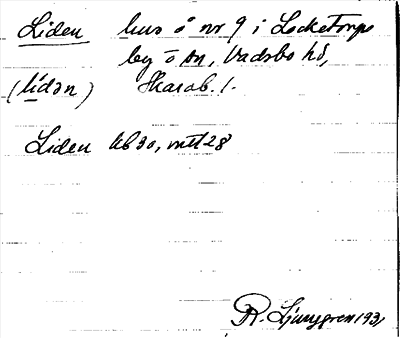 Liden hus å nr 9 i Locketorps
by ö sn, Vadsbo hd,
(lídən) Skarab. l.
Liden kb 30, mtl 28
R. Ljunggren 1931